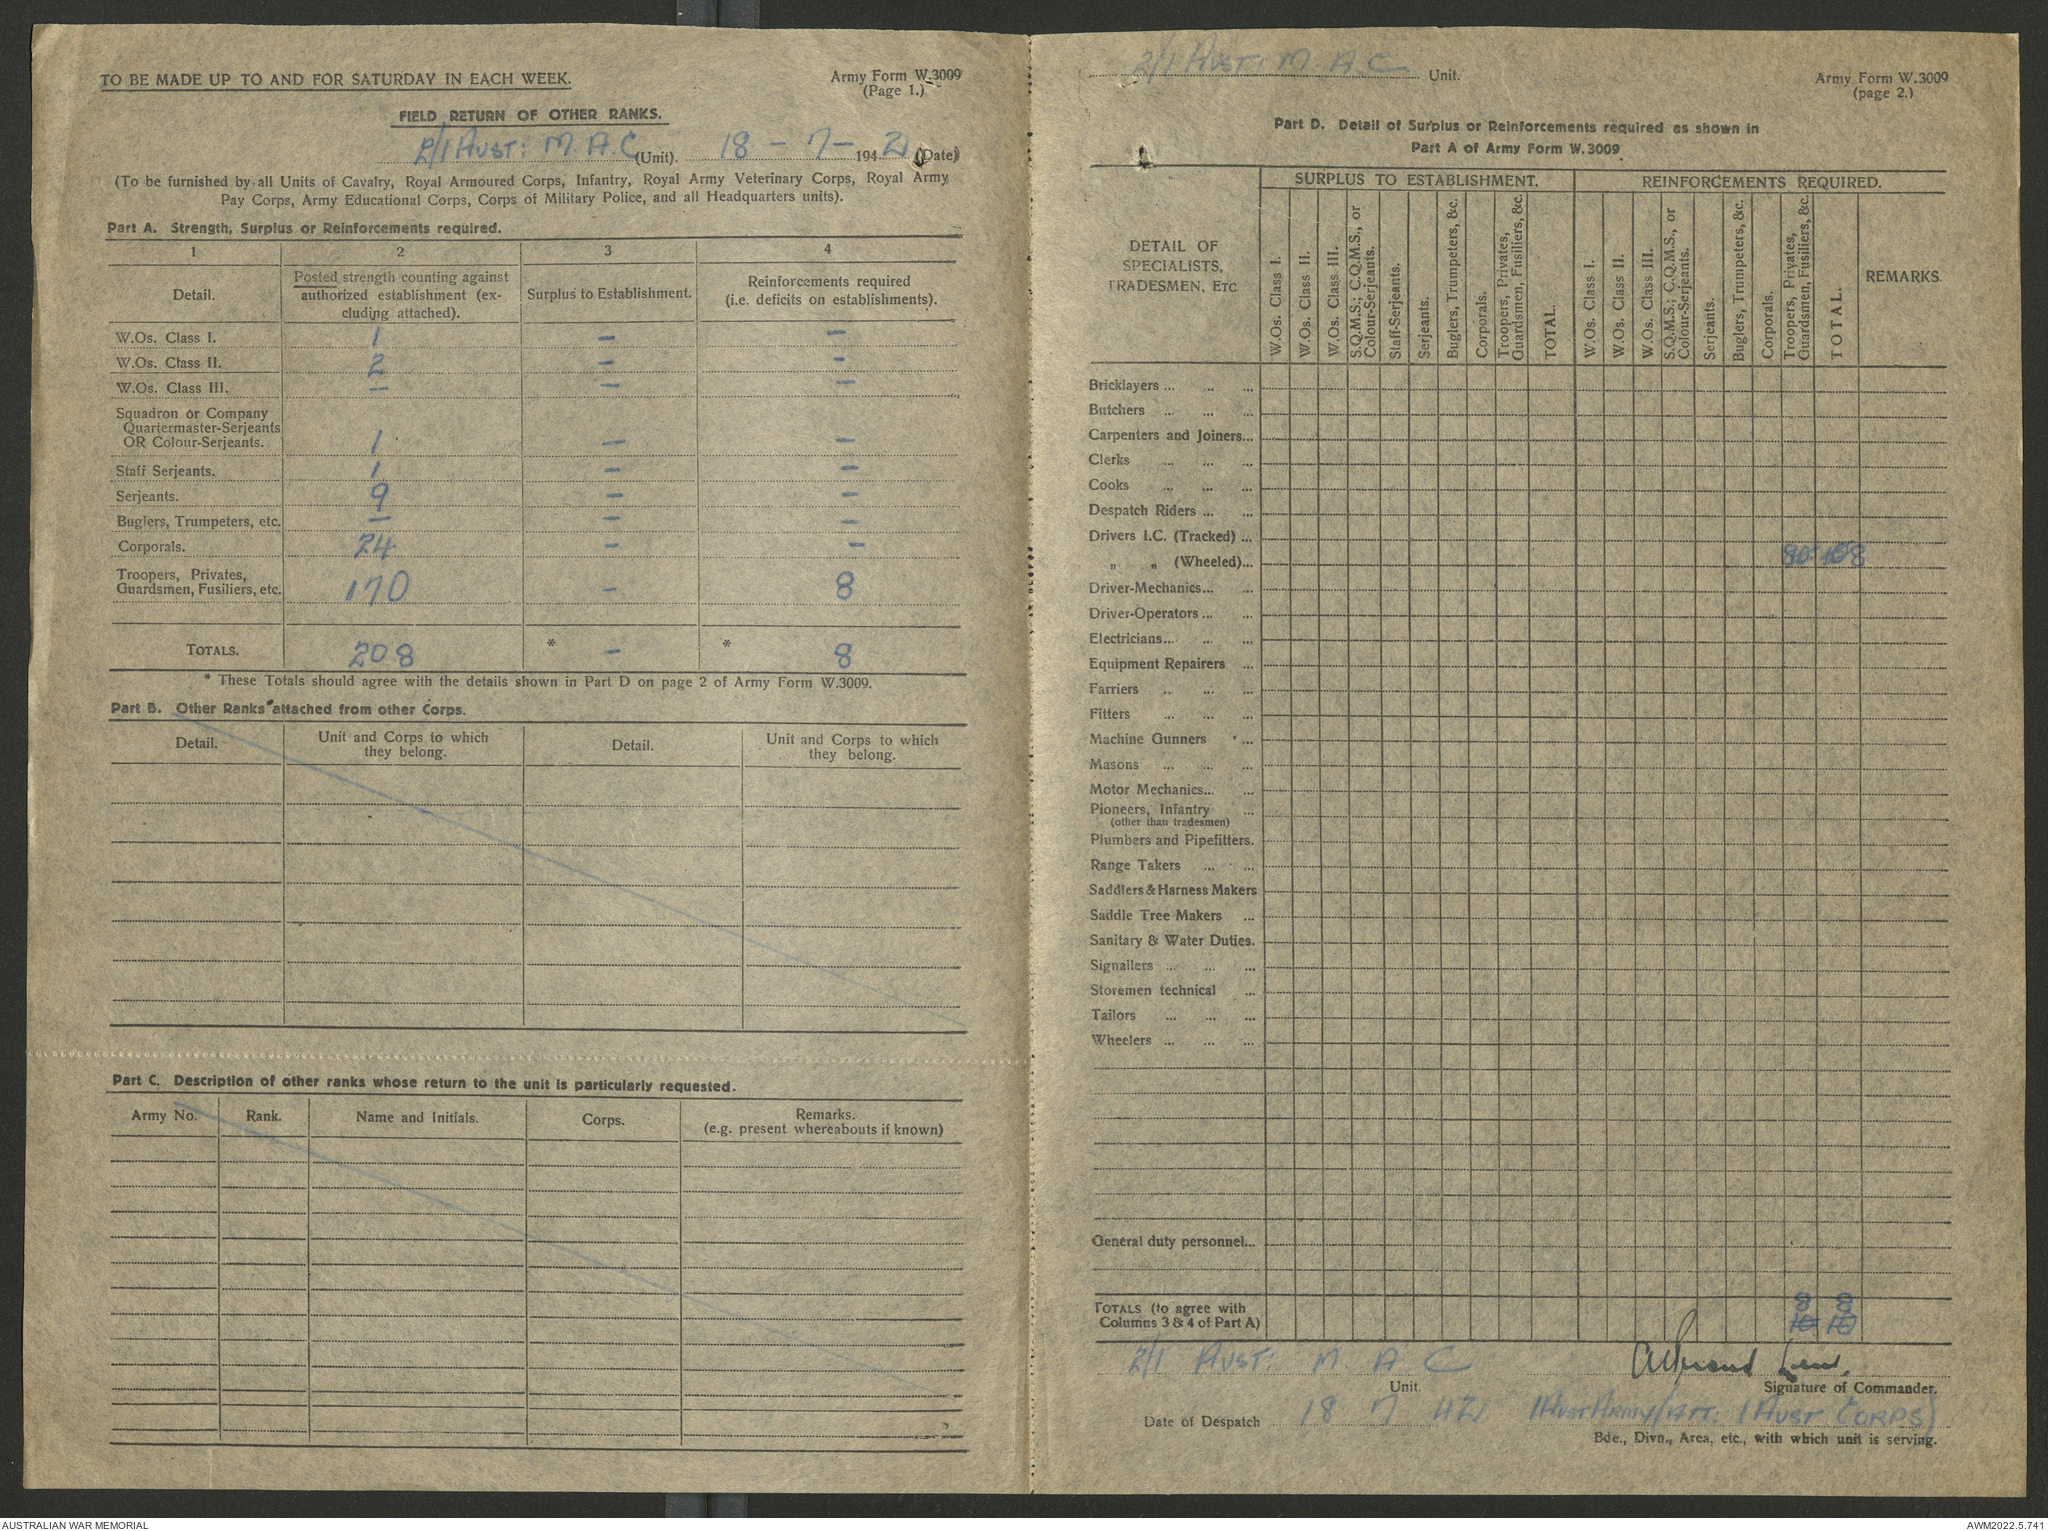 TO BE MADE UP TO AND FOR SATURDAY IN EACH WEEK.
Army Form W.3009
(Page 1.)
FIELD RETURN OF OTHER RANKS.
2/1 AUST: M.A.C (Unit). 18 - 7 - 1942 (Date)
(To be furnished by all Units of Cavalry, Royal Armoured Corps, Infantry, Royal Army Veterinary Corps, Royal Army
Pay Corps, Army Educational Corps, Corps of Military Police, and all Headquarters units).
Part A. Strength, Surplus or Reinforcements required.
1 2 3 4
Detail.
Posted strength counting against
authorized establishment (ex-
cluding attached).
Surplus to Establishment.
Reinforcements required
(i.e. deficits on establishments).
W.Os. Class I. 1 – –
W.Os. Class II. 2 – –
W.Os. Class III. – – –
Squadron or Company
Quartermaster-Serjeants
OR Colour-Serjeants. 1 – –
Staff Serjeants. 1 – –
Serjeants. 9 – –
Buglers, Trumpeters, etc. – – –
Corporals. 24 – –
Troopers, Privates,
Guardsmen, Fusiliers, etc. 170 – 8
TOTALS. 208 * – * 8
* These Totals should agree with the details shown in Part D on page 2 of Army Form W.3009.
Part B. Other Ranks attached from other Corps.
Detail.
Unit and Corps to which
they belong.
Detail.
Unit and Corps to which
they belong.
Part C. Description of other ranks whose return to the unit is particularly requested.
Army No. Rank. Name and Initials. Corps.
Remarks.
(e.g. present whereabouts if known)
2/1 AUST: M A C Unit.
Army Form W.3009
(page 2.)
Part D. Detail of Surplus or Reinforcements required as shown in
Part A of Army Form W.3009
DETAIL OF
SPECIALISTS,
TRADESMEN, ETC.
SURPLUS TO ESTABLISHMENT.
W.Os. Class I.
W.Os. Class II.
W.Os. Class III.
S.Q.M.S.; C.Q.M.S., or
Colour-Serjeants.
Staff-Serjeants.
Serjeants.
Buglers, Trumpeters, &c.
Corporals.
Troopers, Privates,
Guardsmen, Fusiliers, &c.
TOTAL.
REINFORCEMENTS REQUIRED.
W.Os. Class I.
W.Os. Class II.
W.Os. Class III.
S.Q.M.S.; C.Q.M.S., or
Colour-Serjeants.
Serjeants.
Buglers, Trumpeters, &c.
Corporals.
Troopers, Privates,
Guardsmen, Fusiliers, &c.
TOTAL.
REMARKS.
Bricklayers ... ... ...
Butchers ... ... ...
Carpenters and Joiners...
Clerks ... ... ...
Cooks ... ... ...
Despatch Riders ... ...
Drivers I.C. (Tracked) ...
„ „ (Wheeled)...
Driver-Mechanics... ...
Driver-Operators ... ...
Electricians... ... ...
Equipment Repairers ...
Farriers ... ... ...
Fitters ... ... ...
Machine Gunners ...
Masons ... ... ...
Motor Mechanics... ...
Pioneers, Infantry ...
(other than tradesmen)
Plumbers and Pipefitters.
Range Takers ... ...
Saddlers & Harness Makers
Saddle Tree Makers ...
Sanitary & Water Duties.
Signallers ... ... ...
Storemen technical ...
Tailors ... ... ...
Wheelers ... ... ...
General duty personnel...
TOTALS (to agree with
Columns 3 & 4 of Part A)
8 8
10 10
2/1 AUST: M. A C
Unit.
Signature of Commander.
Date of Despatch 18 7 42
1 AUST ARMY (ATT: 1 AUST CORPS)
Bde., Divn., Area, etc., with which unit is serving.
AUSTRALIAN WAR MEMORIAL
AWM2022.5.741